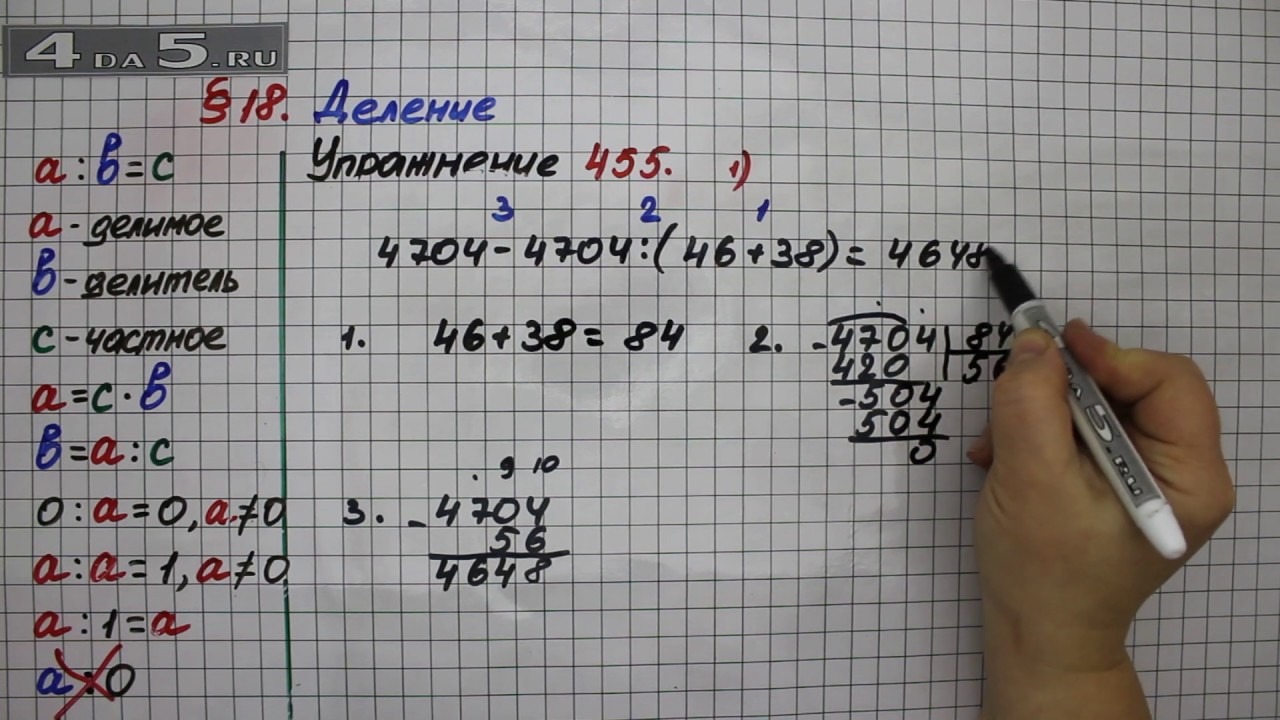 4 DA 5.RU
§ 18. Деление
a : b = c
a - делимое
b - делитель
c - частное
a = c · b
b = a : c
0 : a = 0, a ≠ 0
a : a = 1, a ≠ 0
a : 1 = a
a : 0
Упражнение 455. 1)
3 2 1
4704 - 4704 : ( 46 + 38 ) = 4648
1. 46 + 38 = 84
2. - 4704 84
420 56
- 504
504
0
. 9 10
3. - 4704
56
4648
DA 5.RU